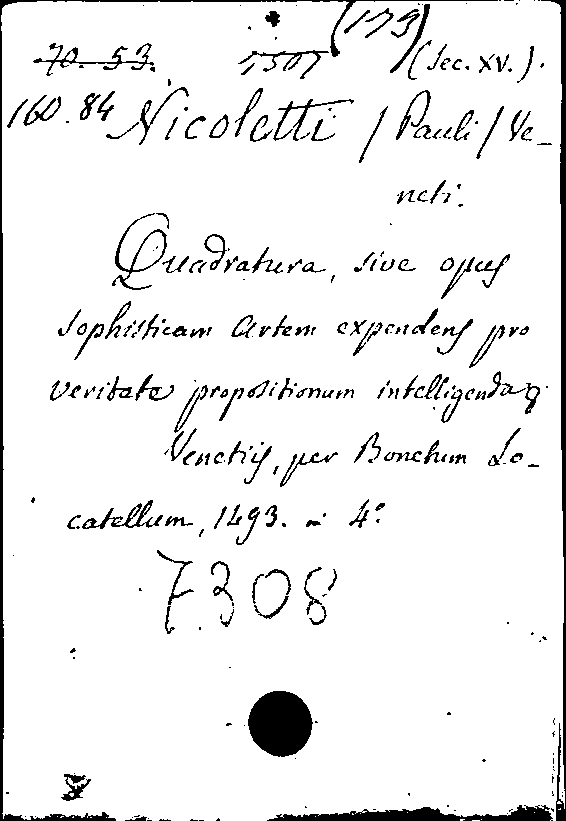 (173)
70. 53. 1507 (Sec. XV.).
160.84 Nicoletti / Pauli / Ve-
neti.
Quadratura, sive opus
sophisticam artem expendens pro
veritate propositionum intelligenda
Venetiis, per Bonetum Lo-
catellum, 1493. in 4º.
7308